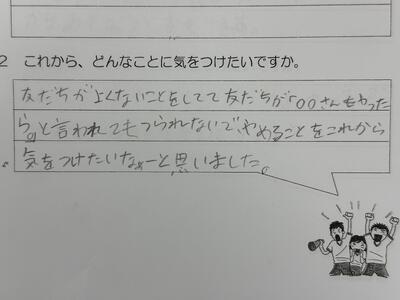 2 これから、どんなことに気をつけたいですか。
友だちがよくないことをしてて友だちが「○○さんもやった
ら。」と言われてもつられないで、やめることをこれから
気をつけたいなぁーと思いました。